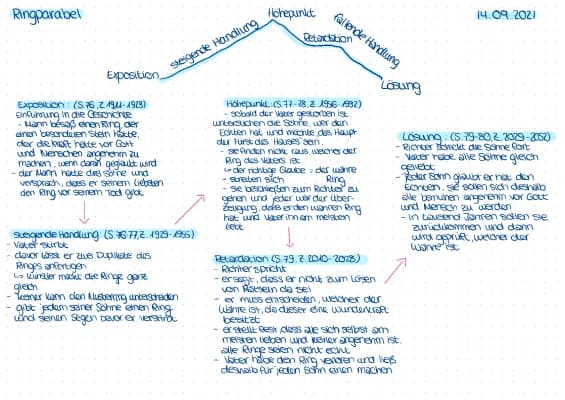 Ringparabel
14.09.2021
Höhepunkt
steigende Handlung
fallende Handlung
Retardation
Exposition
Lösung
Exposition: (S.76, Z. 1911-1928)
Einführung in die Geschichte
- Mann besaß einen Ring, der
einen besonderen Stein hatte,
der die Kraft hatte vor Gott
und Menschen angenehm zu
machen, wenn daran geglaubt wird
- der Mann hatte drei Söhne und
versprach, dass er seinem Liebsten
den Ring vor seinem Tod gibt
steigende Handlung (S.76-77, Z. 1929-1955)
- Vater stirbt
- davor lässt er zwei Duplikate des
Rings anfertigen
↳ Künstler macht die Ringe ganz
gleich
- keiner kann den Musterring unterscheiden
- gibt jedem seiner Söhne einen Ring
und seinen Segen bevor er verstirbt
Höhepunkt: (S.77-78, Z. 1956-1992)
- sobald der Vater gestorben ist,
untersuchen die Söhne, wer den
Echten hat und möchte "das Haupt
der Fürst des Hauses" sein.
- sie finden nicht raus welcher der
Ring des Vaters ist
↳ der richtige Glaube = der wahre
- streiten sich Ring
- sie beschließen zum Richter zu
gehen und jeder war der Über-
zeugung, dass er den wahren Ring
hat und Vater ihn am meisten
liebt
Retardation (S.79, Z. 2010-2028)
- Richter spricht
- er sagt, dass er nicht zum Lösen
von Rätseln da sei
- er muss entscheiden, welcher der
Wahre ist, da dieser eine Wunderkraft
besitzt
- er stellt fest, dass alle sich selbst am
meisten lieben und keiner angenehm ist.
alle Ringe seien nicht echt.
- Vater habe den Ring verloren und ließ
deshalb für jeden Sohn einen machen
Lösung: (S.79-80, Z. 2029-2050)
- Richter schickt die Söhne fort
- Vater habe alle Söhne gleich
geliebt
- jeder Sohn glaubt er hat den
Echten, sie sollen sich deshalb
alle bemühen angenehm vor Gott
und Mensch zu werden
- in tausend Jahren sollen sie
zurückkommen und dann
wird geprüft, welcher der
Wahre ist